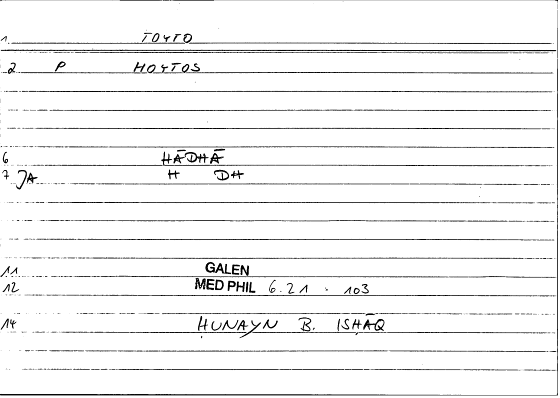 1 TOYTO
2 P HOYTOS
6 HĀDHĀ
7 JA H DH
11 GALEN
12 MED PHIL 6.21 . 103
14 ḤUNAYN B. ISḤĀQ